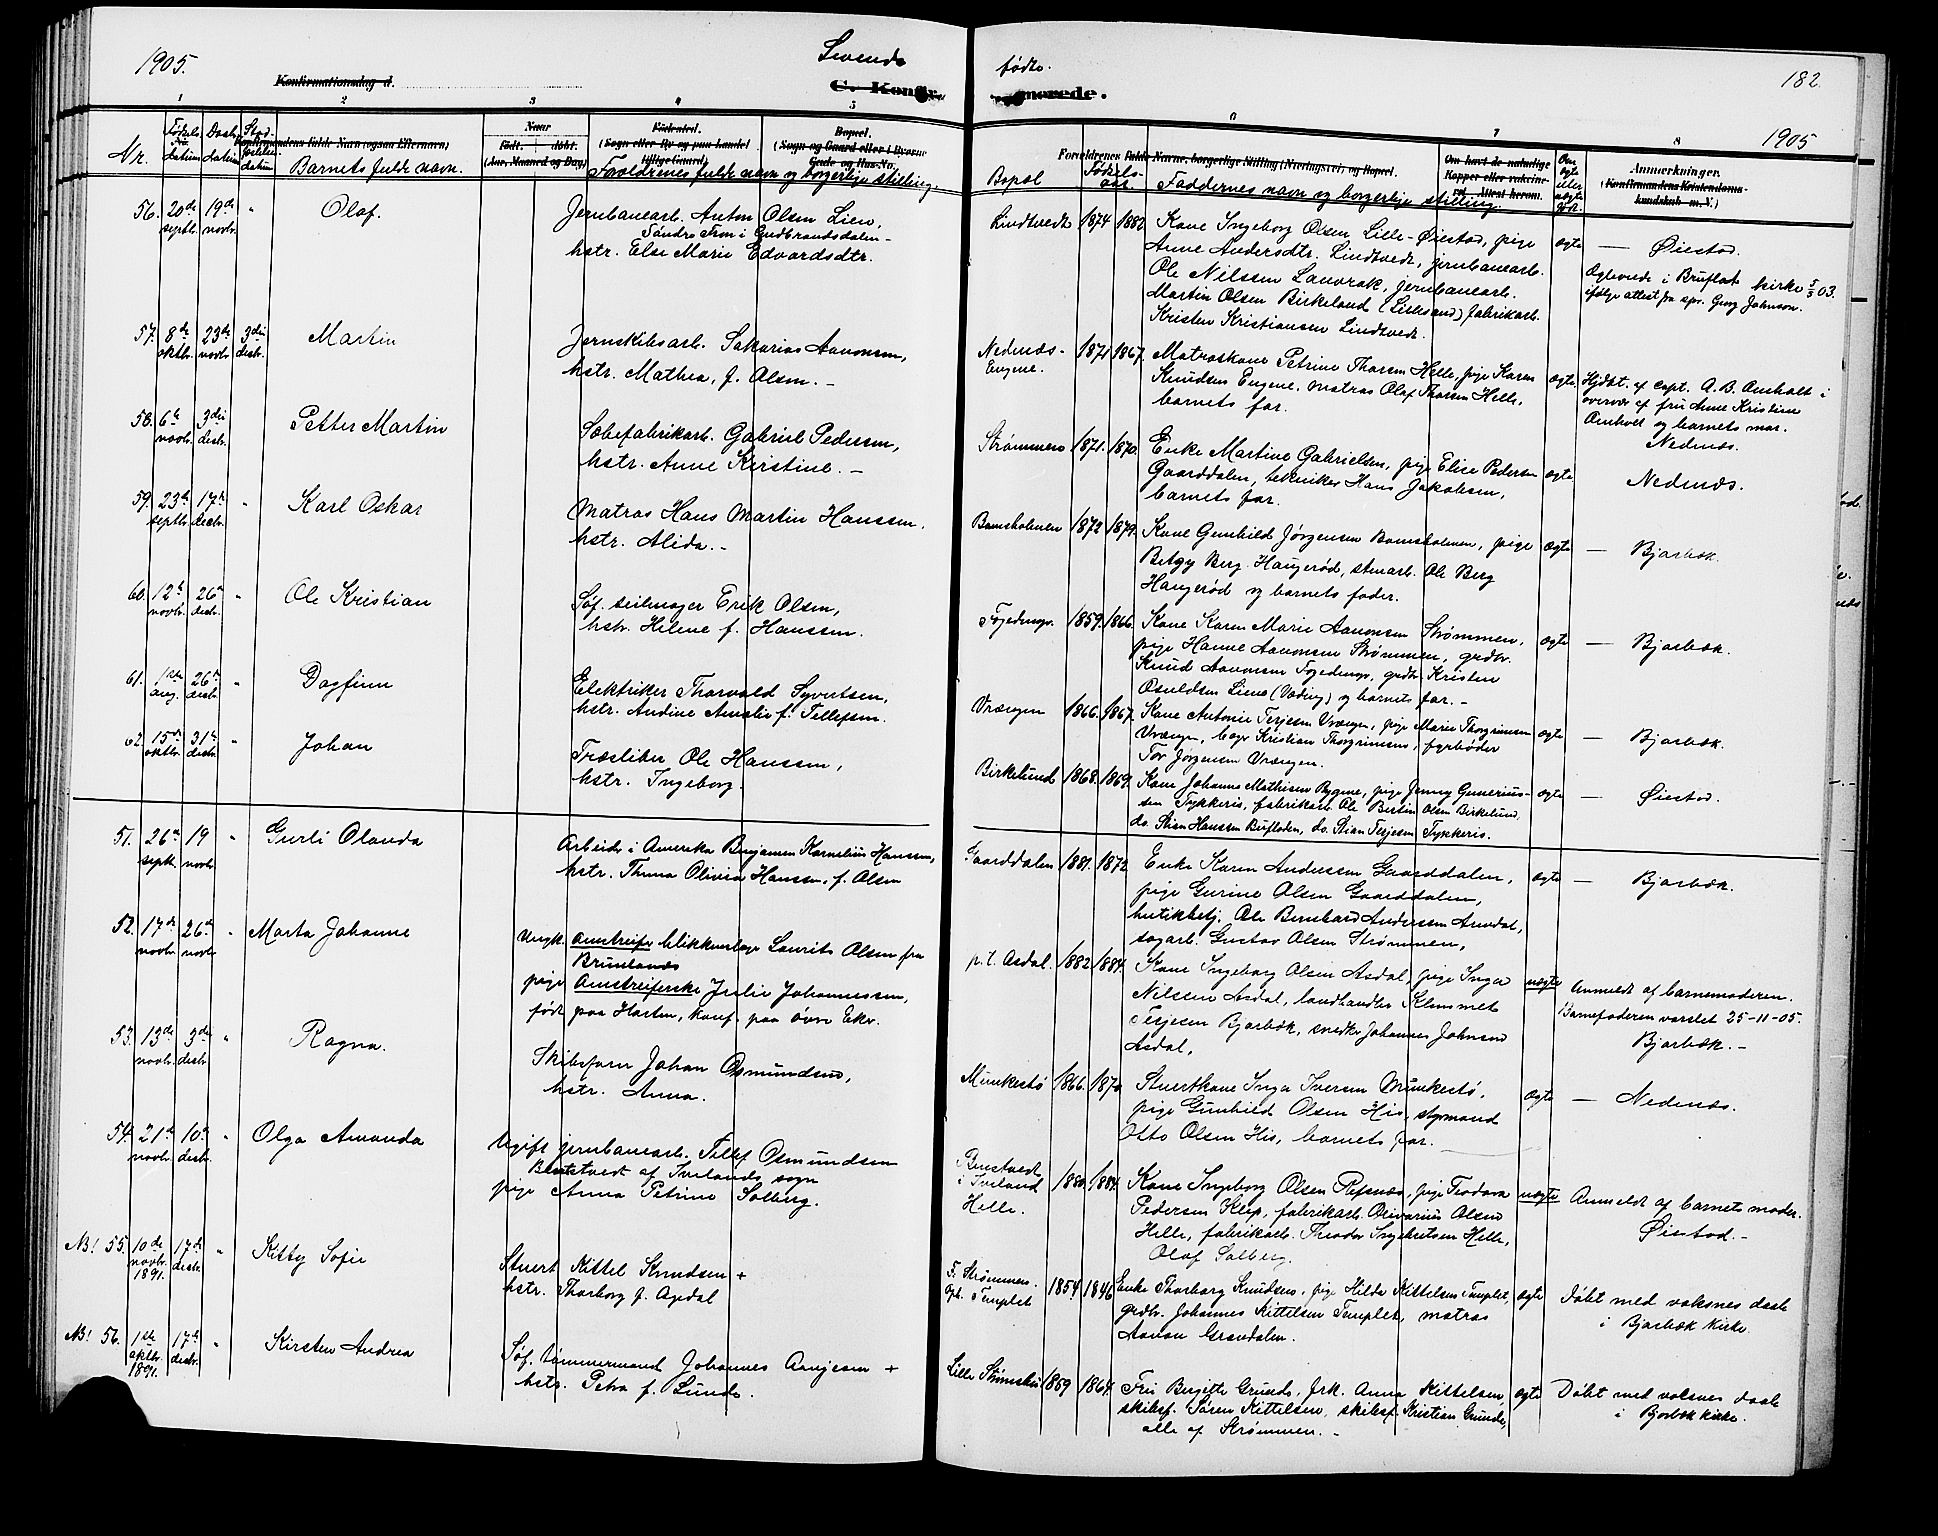 1905.
Levende
fødte.
182.
Konfirmationsdag d.
C. Konfir-
merede.
1 2 3 4 5
6 7 8
1905
Nr.
Fødsels datum
Daabs datum
Barnets fulde navn.
Naar
Født. døbt.
(Aar, Maaned og Dag)
Fødested.
(Sogn eller By og paa Landet tillige Gaard)
Bopæl.
Forældrenes fulde navn og borgerlige stilling
Bopæl
Fødselsaar
Faddernes navn og borgerlige stilling.
Om ægte eller uægte født.
Anmerkninger.
(Konfirmandens Kristendomskundskab m. V.)
56. 20de septbr. 19de novbr. " Olaf.
Jernbanearb. Anton Olsen Lien,
Søndre Fron i Gudbrandsdalen -
hstr. Else Marie Edvardsdtr.
Lindtvedt 1874 1882
Kone Ingeborg Olsen Lille-Øiestad, pige
Anne Andersdtr. Lindtvedt, jernbanearb.
Ole Nilssen Lauvrak, jernbanearb.
Martin Olsen Birkeland (Lillesand) fabrikarb.
Kristen Kristiansen Lindtvedt.
ægte — Øiestad.
Ægteviede i Bruflat kirke 5/3 03.
ifølge attest fra spr. Georg Johnson.
57. 8de oktbr. 23de novbr. 3die desbr. Martin
Jernskibsarb. Sakarias Aanonsen,
hstr. Mathea, f. Olsen. -
Nedenæs- Engene. 1871 1867.
Matroskone Petrine Thorsen Helle, pige Karen
Knudsen Engene, matros Olaf Thorsen Helle,
barnets far.
ægte. Hjdbt. af capt. A. B. Amholt i
overvær af fru Anne Kristine
Amholt og barnets mor.
Nedenæs.
58. 6te novbr. 3die desbr. Petter Martin
Sæbefabrikarb. Gabriel Pedersen,
hstr. Anne Kirstine. -
Strømmen 1871. 1870.
Enke Martine Gabrielsen, pige Elise Pedersen
Gaarddalen, tekniker Hans Jakobsen,
barnets far.
ægte Nedenæs.
59. 23de septbr. 17de desbr. " Karl Oskar
Matros Hans Martin Hanssen.
hstr. Alida. -
Bomsholmen 1872 1879.
Kone Gunhild Jørgensen Bomsholmen, pige
Betzy Berg. Haugerød, stenarb. Ole Berg
Haugerød og barnets fader.
ægte — Bjorbæk.
60. 12te novbr. 26de desbr. " Ole Kristian
Søf. seilmager Erik Olsen,
hstr. Helene f. Hanssen.
1859. 1866.
Kone Karen Marie Aanonsen Strømmen,
pige Hanne Aanonsen Strømmen, grdbr.
Knud Aanonsen, grdbr. Kristen
Osuldsen Liene og barnets far. -
ægte — Bjorbæk.
61. 1ste aug. 26de desbr. " Dagfinn
Elektriker Thorvald Syvertsen,
hstr. Andine Amalie f. Tellefsen.
Vrængen 1866. 1867.
Kone Antonie Terjesen Vrængen, pige Marie Thorgrimsen
Vrængen, Kristian Thorgrimsen, fyrbøder
Tor Jørgensen Vrængen.
ægte — Bjorbæk.
62. 15de oktbr. 31te desbr. " Johan
Træsliber Ole Hanssen,
hstr. Ingeborg.
Birkelund 1868. 1869.
Kone Johanne Mathisen Rygene, pige Jenny Gunerius-
sen Tykkeris, fabrikarb. Ole Bertin Olsen Birkelund,
do. Stian Hanssen Bufloden, do. Stian Terjesen Tykkeris.
ægte — Øiestad.
51. 26de septbr. 19 novbr. " Gurli Olanda
Arbeider i Amerika Benjamin Kornelius Hanssen,
hstr. Thina Olivia Hanssen, f. Olsen
Gaarddalen 1881. 1872.
Enke Karen Anderssen Gaarddalen,
pige Gurine Olsen Gaarddalen,
butikbetj. Ole Bernhard Anderssen Arendal,
sagarb. Gustav Olsen Strømmen,
ægte — Bjorbæk.
52. 17de novbr. 26de novbr. " Marta Johanne
Ungk. omstreifer blikkenslager Laurits Olsen fra
Brunlanæs
pige Omstreiferske Julie Johannessen,
født paa Horten, konf. paa øvre Eker.
p.t. Asdal. 1882 1884.
Kone Ingeborg Olsen Asdal, pige Inga
Nilssen Asdal, landhandler Klemmet
Terjesen Bjorbæk, snedker Johannes Johnsen
Asdal,
uægte Anmeldt af barnemoderen.
Barnefaderen varslet 25-11-05.
Bjorbæk. -
53. 13de novbr. 3de desbr. " Ragna.
Skibsfører Johan Osmundsen,
hstr. Anna.
Munkestø 1866. 1870
Stuertkone Inga Iversen Munkestø,
pige Gunhild Olsen His, styrmand
Otto Olsen His, barnets far.
ægte — Nedenæs.
54. 21de novbr. 10de desbr. " Olga Amanda
Ugift jernbanearb. Tellef Osmundsen
Benstvedt af Ivelands sogn
pige Anna Petrine Solberg.
Benstvedt i Iveland
Helle.
1880. 1884.
Kone Ingeborg Olsen Refsnæs, pige Teodora
Pedersen Kup, fabrikarb. Olsen
Helle, fabrikarb. Theodor Ingebretsen Helle,
Olaf Solberg.
uægte Anmeldt af barnets moder.
Øiestad. -
NB! 55. 10de novbr. 1891. 17de desbr. " Kitty Sofie
Stuert Kittel Knudsen +
hstr. Thorborg f. Agdal
F. Strømmen.
Oph. Templet
1854 1846
Enke Thorborg Knudsen, pige Hilda Kittelsen Templet,
grdbr. Johannes Kittelsen Templet, matros
Aanon Grøndalen.
ægte Døbt med voksnes daab
i Bjorbæk kirke.
NB! 56. 1ste oktbr. 1891. 17de desbr. " Kirsten Andrea
Søf. tømmermand Johannes Arnjesen +
hstr. Petra f. Lunde.
Lille Strømsbu 1859 1864.
Fru Bergitte Grunde, frk. Anna Kittelsen,
skibsf. Søren Kittelsen, skibsf. Kristian Grunde,
alle af Strømmen. -
ægte Døbt med voksnes daab
i Bjorbæk kirke.